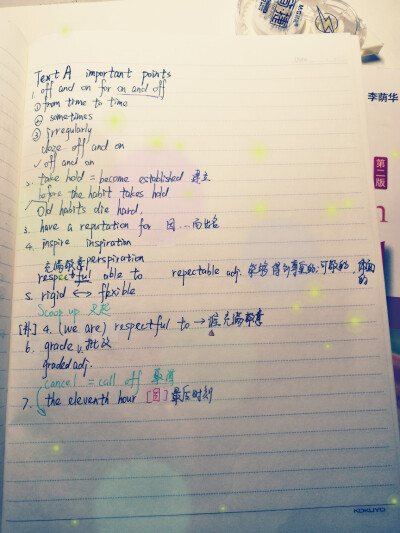 Text A important points
1. off and on for on and off
① from time to time
② sometimes
③ irregularly
doze off and on
✓ off and on
2. take hold = become established 建立
before the habit takes hold
Old habits die hard.
3. have a reputation for 因...而出名
4. inspire inspiration
perspiration
respectful able to repectable adj. 得到尊重的; 可敬的,
5. rigid ↔ flexible
Scoop up
[补] 4. (we are) respectful to → 充满敬意
6. grade v. 批改
graded adj.
cancel = call off 取消
7. the eleventh hour [固] 最后时刻
李荫华
第二版
KOKUYO
M&G